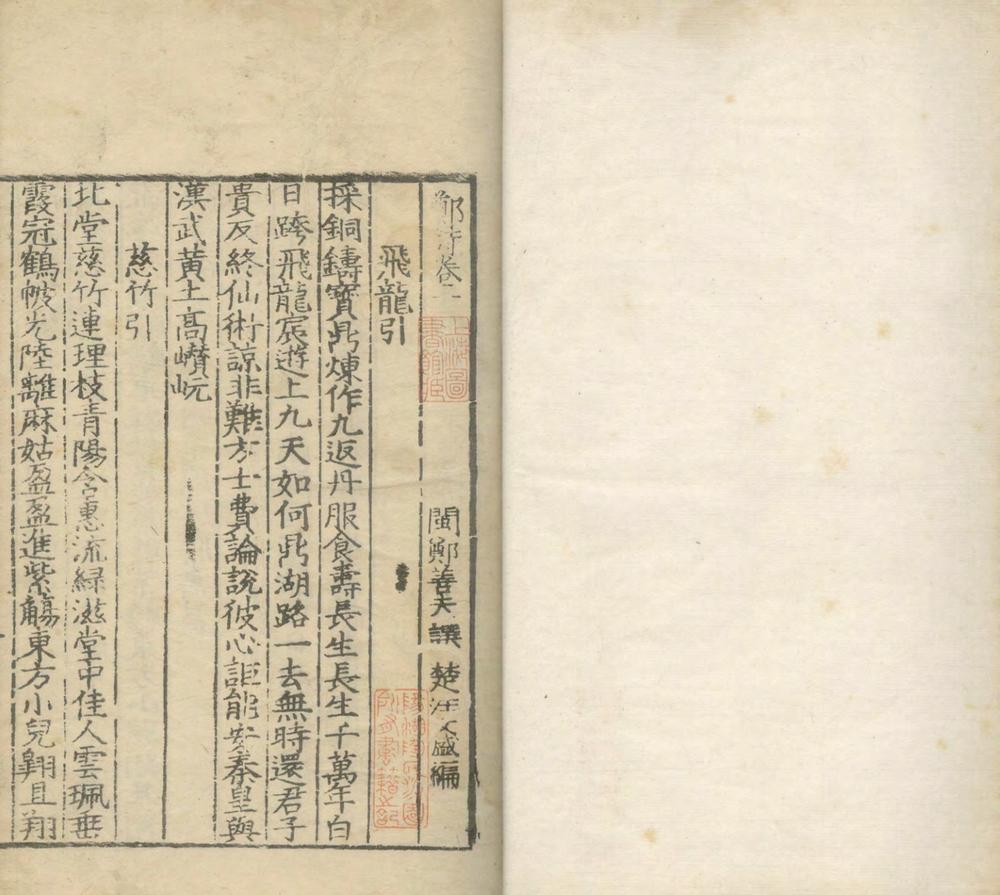 鄭詩卷二
閩鄭善夫譔 楚汪文盛編
飛龍引
採銅鑄寶鼎煉作九返丹服食壽長生長生千萬年白
日跨飛龍宸遊上九天如何鼎湖路一去無時還君子
貴反終仙術諒非難方士費論說彼心詎能安秦皇與
漢武黃土高巑岏
慈竹引
北堂慈竹連理枝青陽含惠流綠滋堂中佳人雲珮垂
霞冠鶴帔光陸離麻姑盈盈進紫觴東方小兒翱且翔
上海圖書館藏